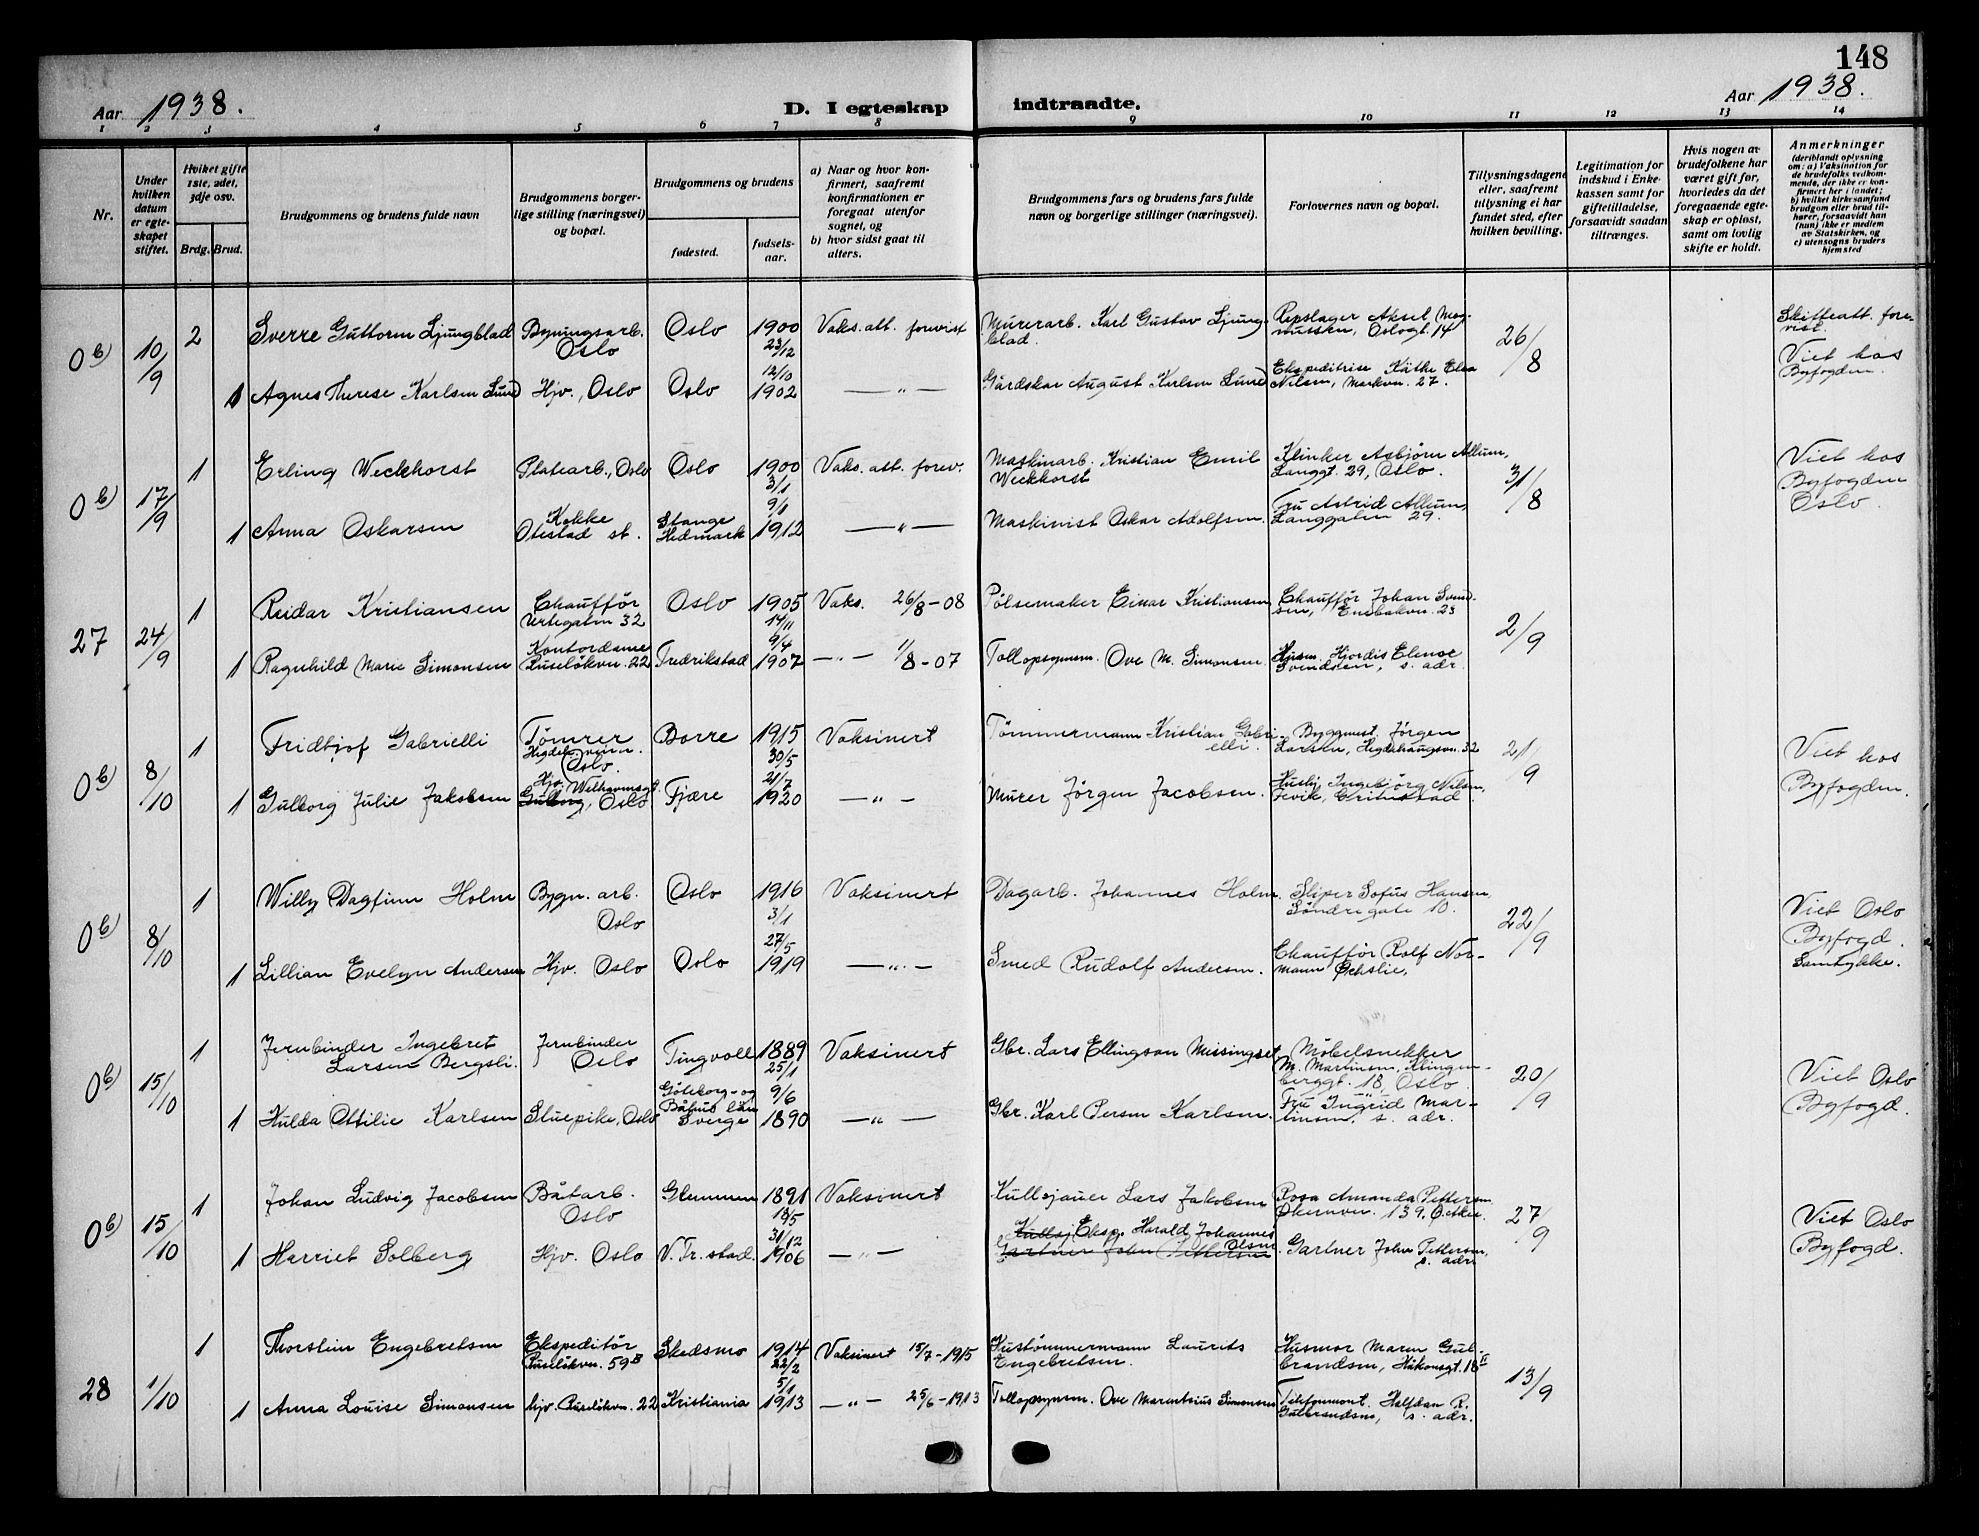 148
Aar 1938.
D. I egteskap indtraadte.
Aar 1938.
1 2 3 4 5 6 7 8 9 10 11 12 13 14
Nr.
Under hvilken datum er egteskapet stiftet.
Hviket gifte 1ste, 2det, 3dje osv.
Brdg. Brud.
Brudgommens og brudens fulde navn
Brudgommens borgerlige stilling (næringsvei) og bopæl.
Brudgommens og brudens
fødested.
fødselsaar.
a) Naar og hvor konfirmert, saafremt konfirmationen er foregaat utenfor sognet, og
b) hvor sidst gaat til alters.
Brudgommens fars og brudens fars fulde navn og borgerlige stillinger (næringsvei).
Forlovernes navn og bopæl.
Tillysningsdagene eller, saafremt tillysning ei har fundet sted, efter hvilken bevilling.
Legitimation for indskud i Enkekassen samt for giftetilladelse, forsaavidt saadan tiltrænges.
Hvis nogen av brudefolkene har været gift før, hvorledes da det foregaaende egteskap er opløst, samt om lovlig skifte er holdt.
Anmerkninger
(deriblandt oplysning om: a) Vaksination for de brudefolks vedkommende, der ikke er konfirmert her i landet; b) hvilket kirkesamfund brudgom eller brud tilhører, forsaavidt han (hun) ikke er medlem av Statskirken, og c) utensogns bruders hjemsted
0 b) 10/9 2 Sverre Guttorm Ljungblad Bygningsarb. Oslo Oslo 1900 23/12 Vaks. att. forevist Murerarb. Karl Gustav Ljungblad. Repslager Aksel Magnussen, Oslogt. 14 26/8 Skifteatt. forevist. Viet hos Byfogden.
1 Agnes Therese Karlsen Lund Hjv., Oslo Oslo 12/10 1902 — " — Gårdskar August Karlsen Lund Ekspeditrise Käthe Elsa Nilsen, Markvn. 27.
0 b) 17/9 1 Erling Weckhorst Platearb., Oslo Oslo 1900 3/1 Vaks. att. forev. Maskinarb. Kristian Emil Weckhorst Klinker Asbjørn Allum, Langgt. 29, Oslo. 31/8 Viet hos Byfogden Oslo.
1 Anna Oskarsen Kokke Otestad st. Stange Hedmark 9/1 1912 — " — Maskinist Oskar Adolfsen. Fru Astrid Allum, Langgaten 29.
27 24/9 1 Reidar Kristiansen Chauffør Urtegaten 32 Oslo 1905 14/11 Vaks. 26/8-08 Pølsemaker Einar Kristiansen Chauffør Johan Svendsen, Enebakvn. 23 2/9
1 Ragnhild Marie Simonsen Kontordame Ruseløkvn. 22 Fredrikstad 9/4 1907 — " — 1/8-07 Tollopsynsm. Ove M. Simonsen. Hjsm. Hjordis Elenoe Svendsen, s. adr.
0 b) 8/10 1 Fridtjof Gabrielli Tømrer Oslo. Borre 1915 30/5 Vaksinert Tømmermann Kristian Gabrielli. Byggmest. Jørgen Larsen, Hegdehaugsvn. 32 21/9 Viet hos Byfogden.
1 Gulborg Julie Jakobsen Hjv. Welhavensgt. Gulborg, Oslo Fjære 21/7 1920 — " — Murer Jørgen Jacobsen. Husbj. Ingebjørg Nilsen, Fevik, Grimstad
0 b) 8/10 1 Willy Dagfinn Holm Bygn. arb. Oslo Oslo 1916 3/1 Vaksinert Dagarb. Johannes Holm. Sliper Sofus Hansen, Søndregate 10. 22/9 Viet Oslo Byfogd. Samtykke.
1 Lillian Evelyn Andersen Hjv. Oslo Oslo 27/5 1919 — " — Smed Rudolf Andersen. Chauffør Rolf Normann
0 b) 15/10 1 Jernbinder Ingebret Larsen Bergsli. Jernbinder Oslo Tingvoll 1889 25/1 Vaksinert Gbr. Lars Ellingsøn Meisingset Møbelsnekker M. Martinsen, Klingenberggt. 18, Oslo. 20/9 Viet Oslo Byfogd.
1 Hulda Ottilie Karlsen Stuepike, Oslo Göteborg- og Båhus län Sverge 9/6 1890 — " — Gbr. Karl Persen Karlsen. Fru Ingrid Martinsen, s. adr.
0 b) 15/10 1 Johan Ludvig Jacobsen Båtarb. Oslo Glemmen 1891 18/5 Vaksinert Kullsjauer Lars Jakobsen Rosa Amanda Pettersen Økernvn. 139, Ø. Aker. 27/9 Viet Oslo Byfogd.
1 Harriet Solberg Hjv. Oslo V. Fr. stad. 31/12 1906 — " — Kullsj. Eksp. Harald Johannes Olsen Gartner John Pettersen. Gartner John Pettersen, s. adr.
28 1/10 1 Thorstein Engebretsen Ekspeditør Ruseløkvn. 59 B Skedsmo 1914 22/2 Vaksinert 15/7-1915 Hustømmermann Laurits Engebretsen. Husmor Maren Gulbrandsen, Håkonsgt. 18 II 13/9
1 Anna Louise Simonsen hjv. Ruseløkvn. 22 Kristiania 5/1 1913 — " — 25/6-1913 Tollopsynsm. Ove Marentsius Simonsen Telefonmont. Halfdan R. Gulbrandsen, s. adr.